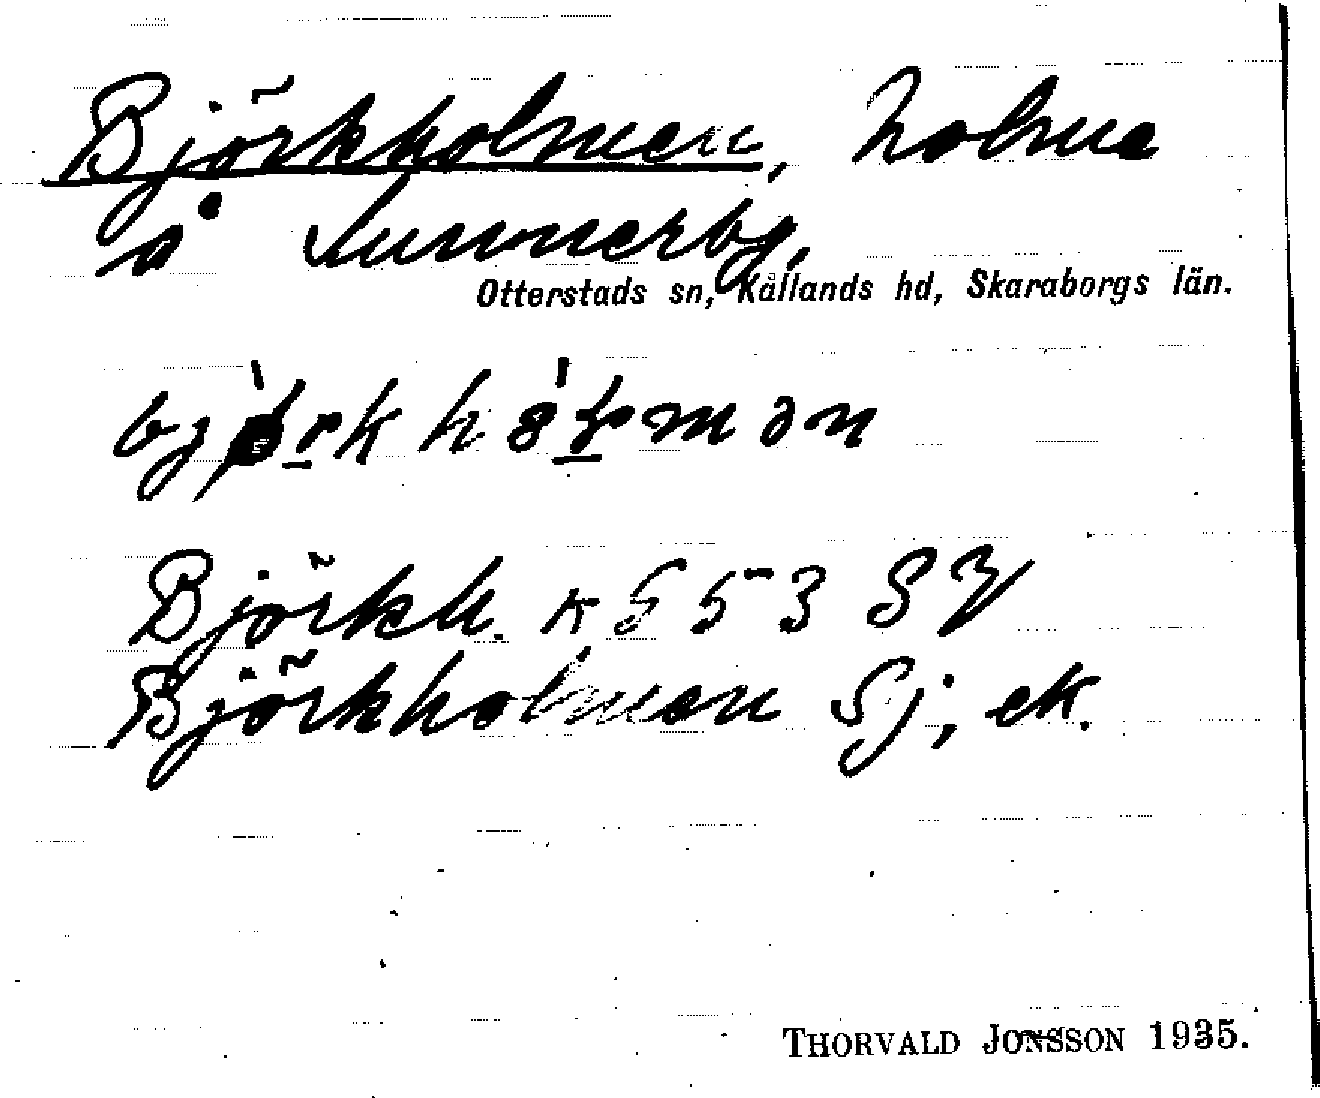 Björkholmen, holme
å Sunnerby,
Otterstads sn, Kållands hd, Skaraborgs län.
Björkh. K S 53 SV
Björkholmen Sj, ek.
THORVALD JONSSON 1935.